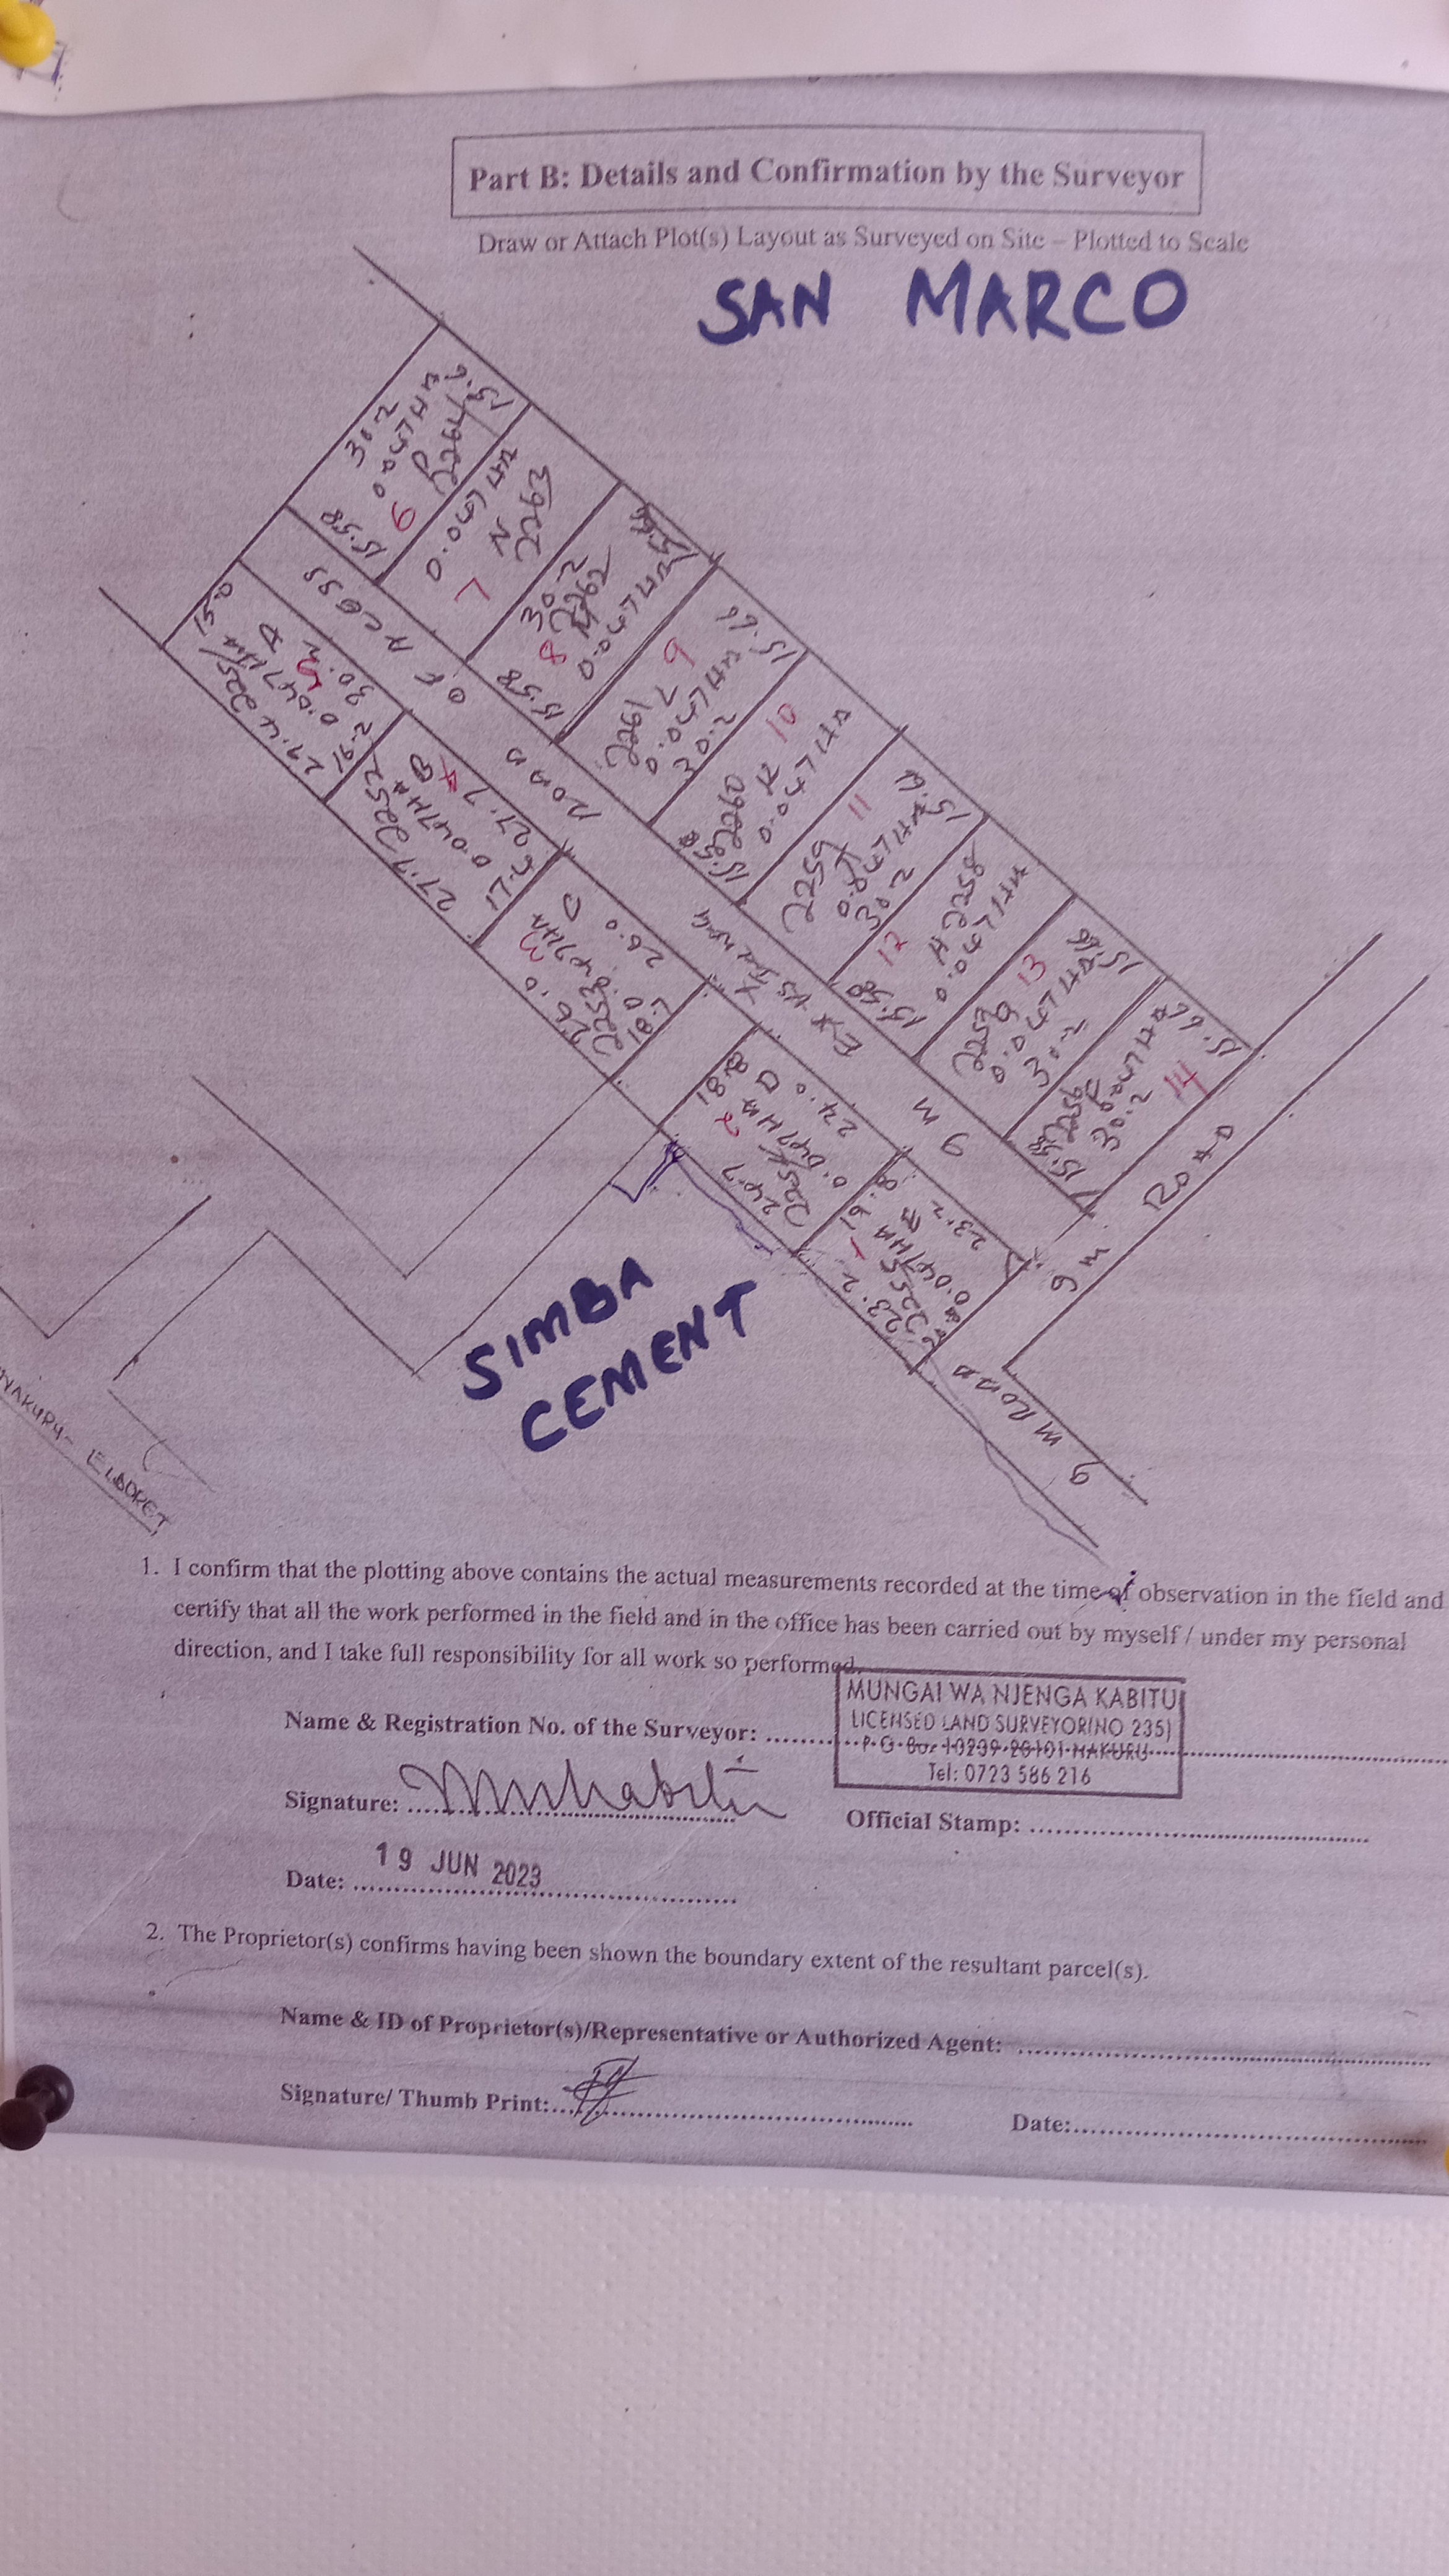 Part B: Details and Confirmation by the Surveyor
Draw or Attach Plot(s) Layout as Surveyed on Site – Plotted to Scale
SAN MARCO
30.2
0.047HA
P
2264
15.58
6
7
0.047HA
N
2263
30.2
2262
M
0.047HA
8
15.58
9
2261
L
0.047HA
30.2
15.66
10
2260
K
0.047HA
15.58
11
2259
0.047HA
30.2
15.66
12
H 2258
0.047HA
15.58
13
2257
G
0.047HA
30.2
15.66
14
2256
0.047HA
30.2
15.58
15.66
ROAD OF ACCESS
9 M
15.0
A
30.2
0.047HA
2251
29.4
B
4
27.7
0.047HA
2252
27.7
17.5
C
26.0
3
0.047HA
2253
26.0
18.7
18.8
D
24.0
2
0.047HA
2254
24.7
19.8
E
23.2
1
0.047HA
2255
23.2
9 M ROAD
9 M ROAD
SIMBA
CEMENT
NAKURU - ELDORET
1. I confirm that the plotting above contains the actual measurements recorded at the time of observation in the field and
certify that all the work performed in the field and in the office has been carried out by myself / under my personal
direction, and I take full responsibility for all work so performed.
MUNGAI WA NJENGA KABITU
LICENSED LAND SURVEYOR(NO 235)
P O Box 10239-20101-NAKURU
Tel: 0723 586 216
Name & Registration No. of the Surveyor:
Signature:
Official Stamp:
Date: 19 JUN 2023
2. The Proprietor(s) confirms having been shown the boundary extent of the resultant parcel(s).
Name & ID of Proprietor(s)/Representative or Authorized Agent:
Signature/ Thumb Print:
Date: